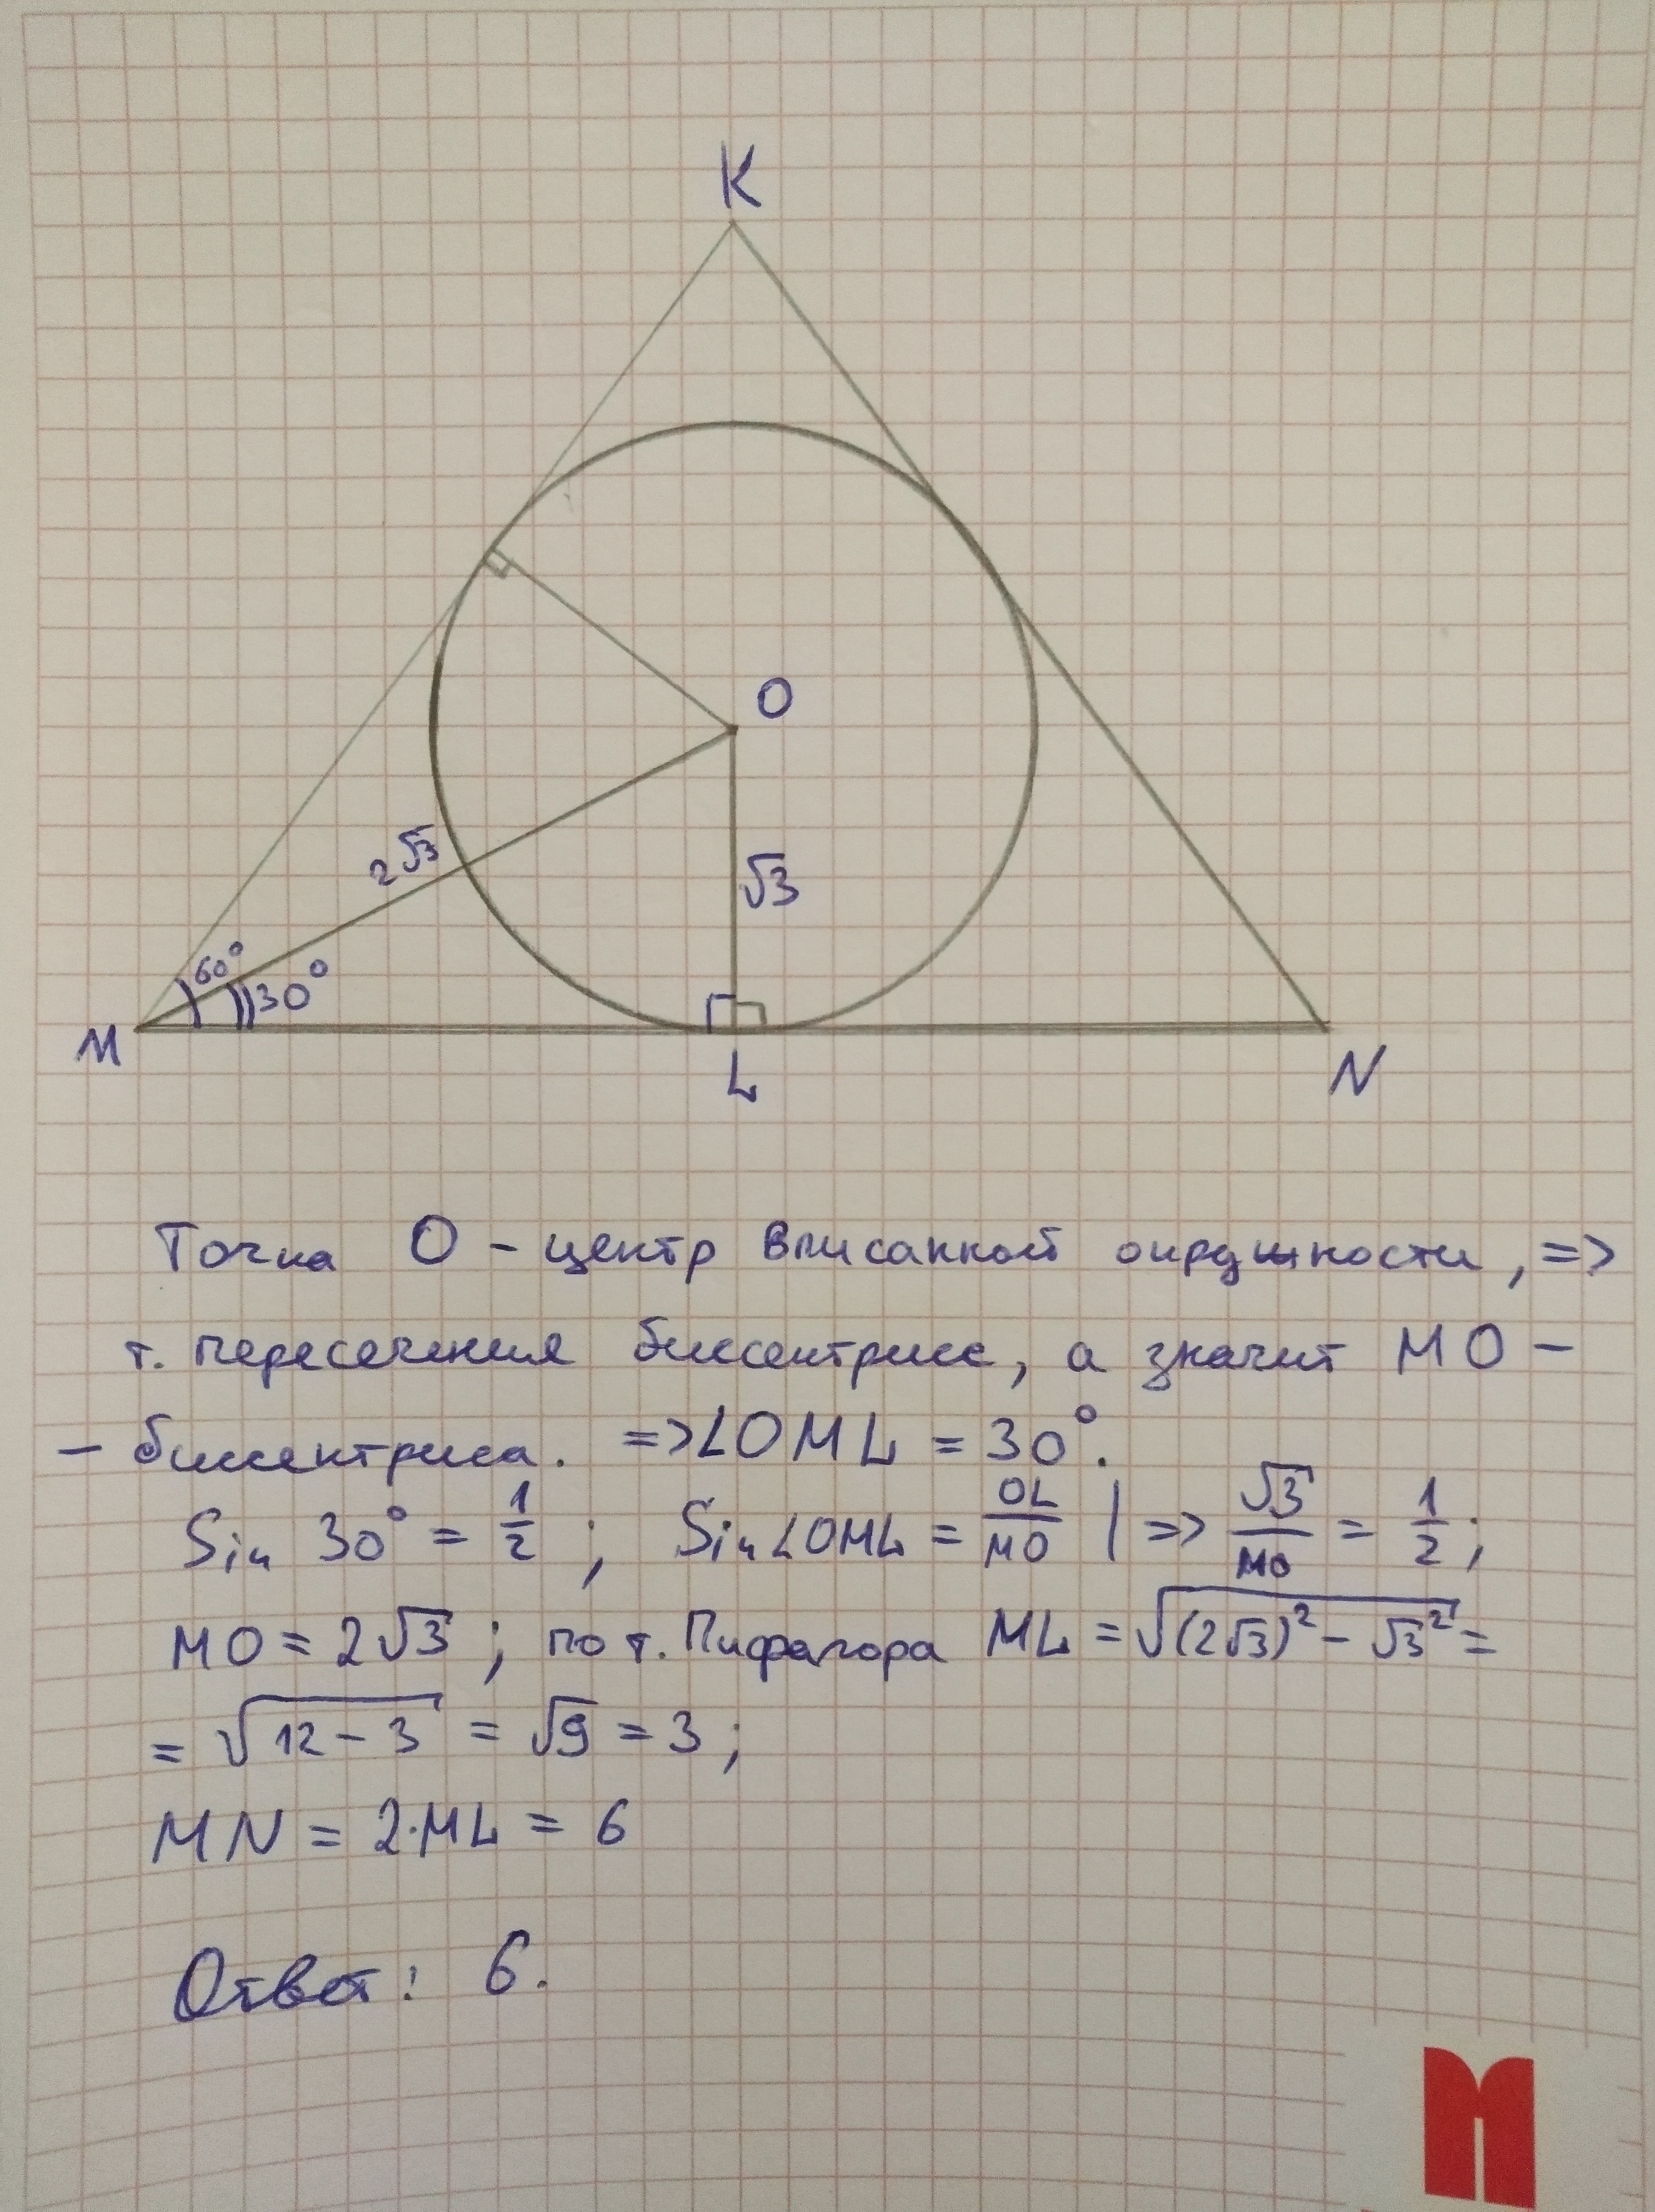 K
O
2√3
√3
60°
30°
M
L
N
Точка O – центр вписанной окружности, =>
т. пересечения биссектрисс, а значит MO –
– биссектриса. => ∠OML = 30°.
Sin 30° = 1/2 ; Sin∠OML = OL/MO | => √3/MO = 1/2;
MO = 2√3 ; по т. Пифагора ML = √((2√3)² – √3²) =
= √(12 – 3) = √9 = 3 ;
MN = 2·ML = 6
Ответ: 6.